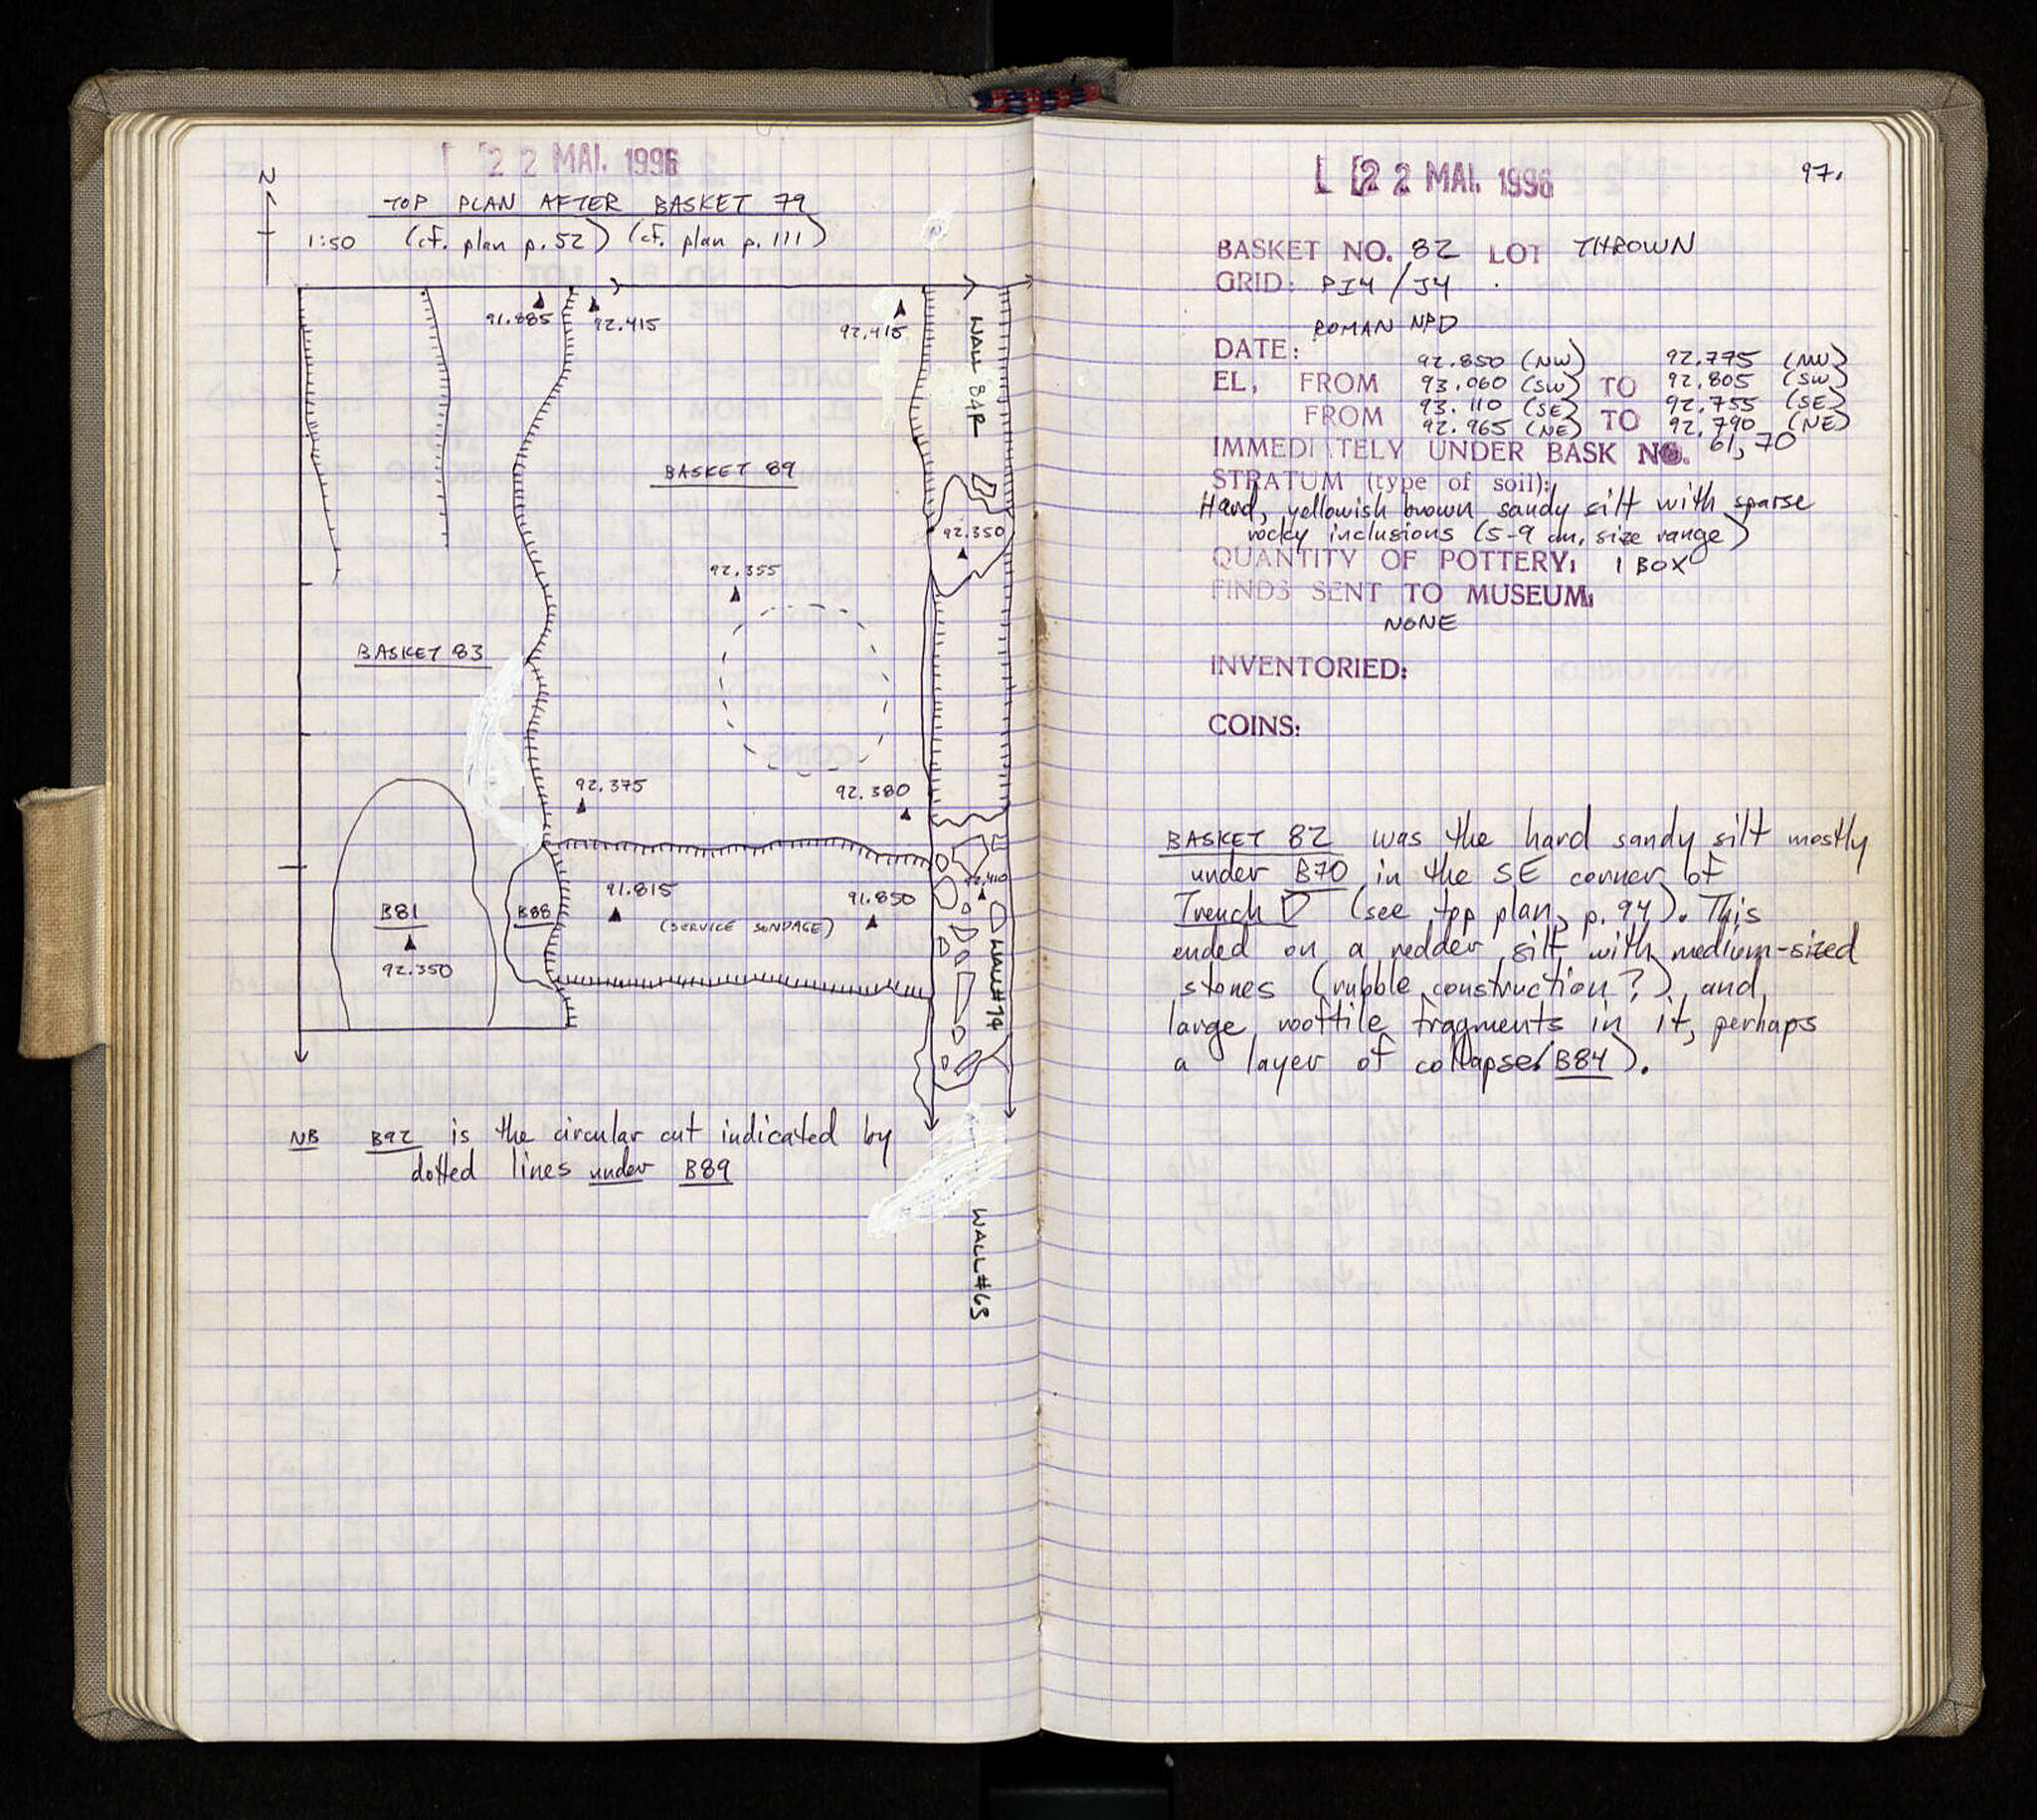 22 MAI. 1996
N
TOP PLAN AFTER BASKET 79
1:50 (cf. plan p. 52) (cf. plan p. 111)
91.885
92.415
92.415
WALL
BASKET 89
92.350
92.355
BASKET 83
92.375
92.380
92.410
91.815
91.850
B81
B88
(SERVICE SONDAGE)
92.350
WALL #74
NB B92 is the circular cut indicated by
dotted lines under B89
WALL #63
22 MAI. 1996
97.
BASKET NO. 82 LOT THROWN
GRID: PI4 / J4
ROMAN NPD
DATE:
92.850 (NW) 92.775 (NW)
EL, FROM 93.060 (SW) TO 92.805 (SW)
FROM 93.110 (SE) TO 92.755 (SE)
92.965 (NE) 92.790 (NE)
IMMEDIATELY UNDER BASK NO. 61, 70
STRATUM (type of soil):
Hard, yellowish brown sandy silt with sparse
rocky inclusions (5-9 cm, size range)
QUANTITY OF POTTERY: 1 BOX
FINDS SENT TO MUSEUM:
NONE
INVENTORIED:
COINS:
BASKET 82 was the hard sandy silt mostly
under B70 in the SE corner of
Trench D (see top plan, p. 94). This
ended on a redder silt with medium-sized
stones (rubble construction?) and
large rooftile fragments in it, perhaps
a layer of collapse (B84).